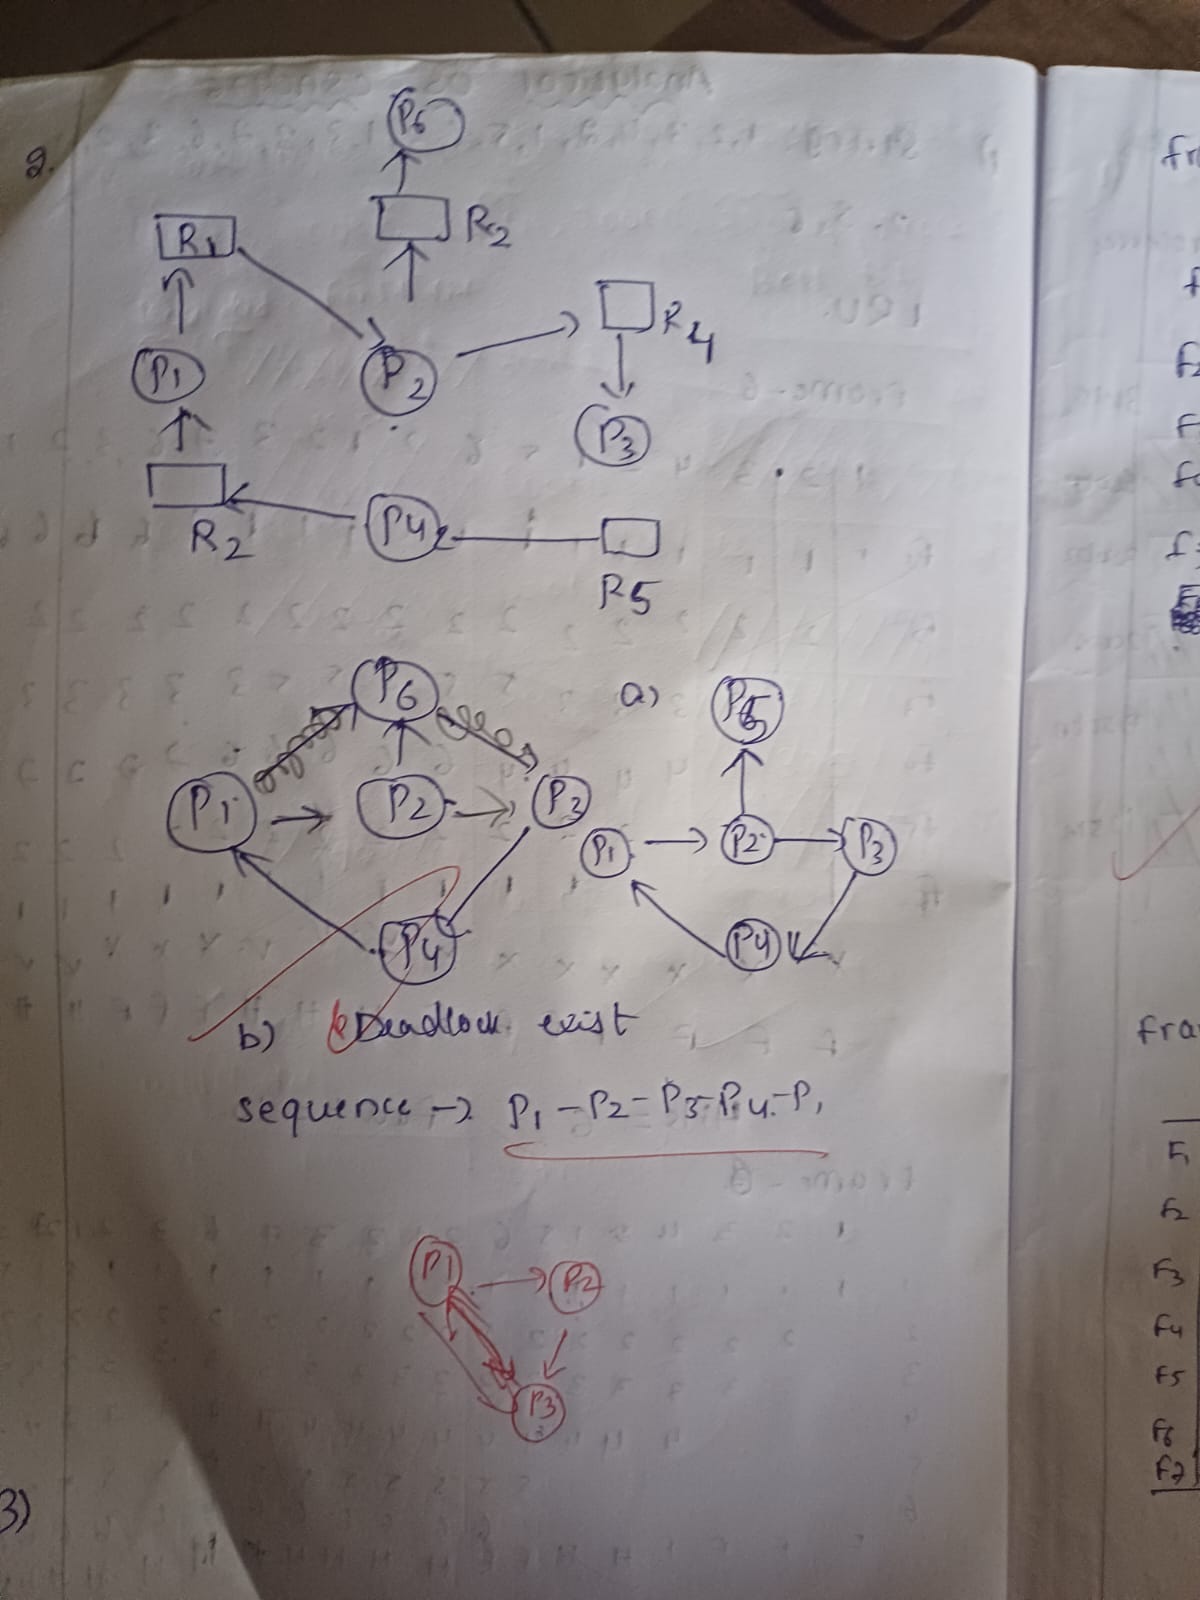 2.
P6
R1
R2
R4
P1
P2
P3
P4
R2
R5
P6
a)
P1
P2
P3
P1
P2
P3
P4
P4
b) Deadlock exist
sequence → P1 - P2 - P3 - P4 - P1
P1
P2
P3
3)
fra
F2
F3
F4
F5
F6
F7